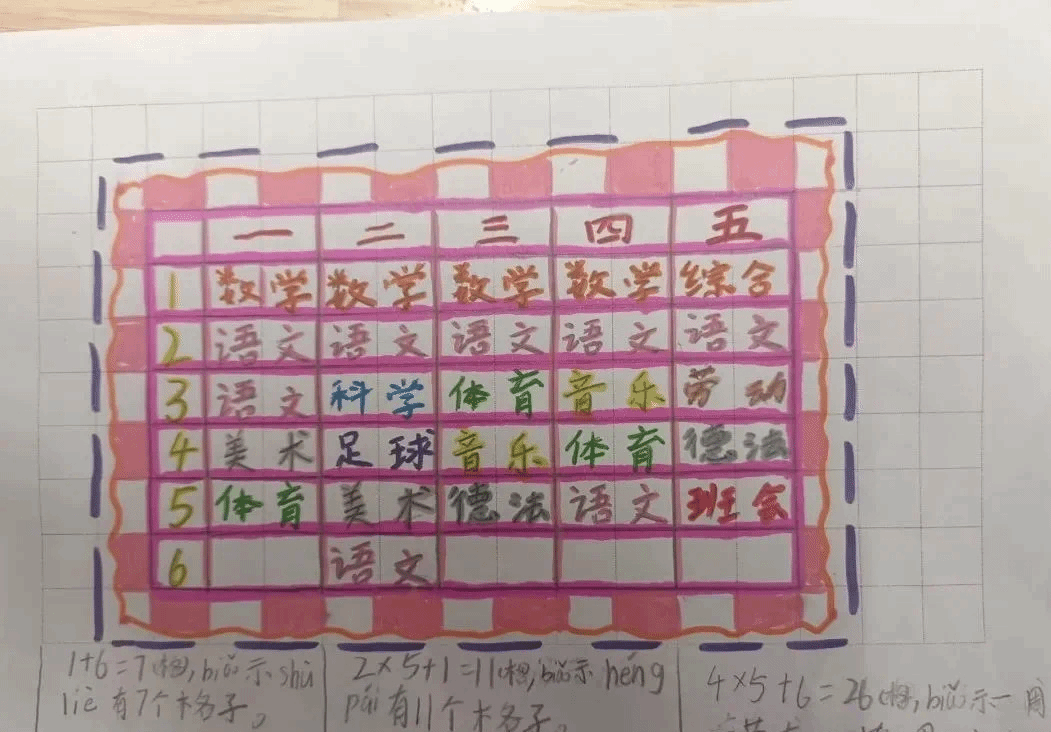 一 二 三 四 五
1 数学 数学 数学 数学 综合
2 语文 语文 语文 语文 语文
3 语文 科学 体育 音乐 劳动
4 美术 足球 音乐 体育 德法
5 体育 美术 德法 语文 班会
6 语文
1+6=7(格),biǎo示shù
liè有7个格子。
2×5+1=11(格),biǎo示héng
pái有11个格子。
4×5+6=26(格),biǎo示一周